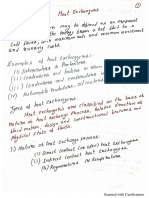 ①
Heat Exchangers
may be defined as an equipment
the energy from a hot fluid to a
cold fluid, with maximum rate and minimum investment
and running costs.
Examples of heat exchangers:
(i)
(ii) Condensers and boilers in steam
(iii) Condensers
(iv) Automobile radiators
Types of heat exchangers
Heat exchangers are classified on the basis of
nature of heat exchange process, relative direction of
fluid motion, design and constructional features and
physical state of fluids.
1) Nature of heat exchange process:
(i) Direct contact (or open) heat exchangers
(ii) Indirect contact heat exchangers.
(a) Regenerators (b) Recuperators
Scanned with CamScanner